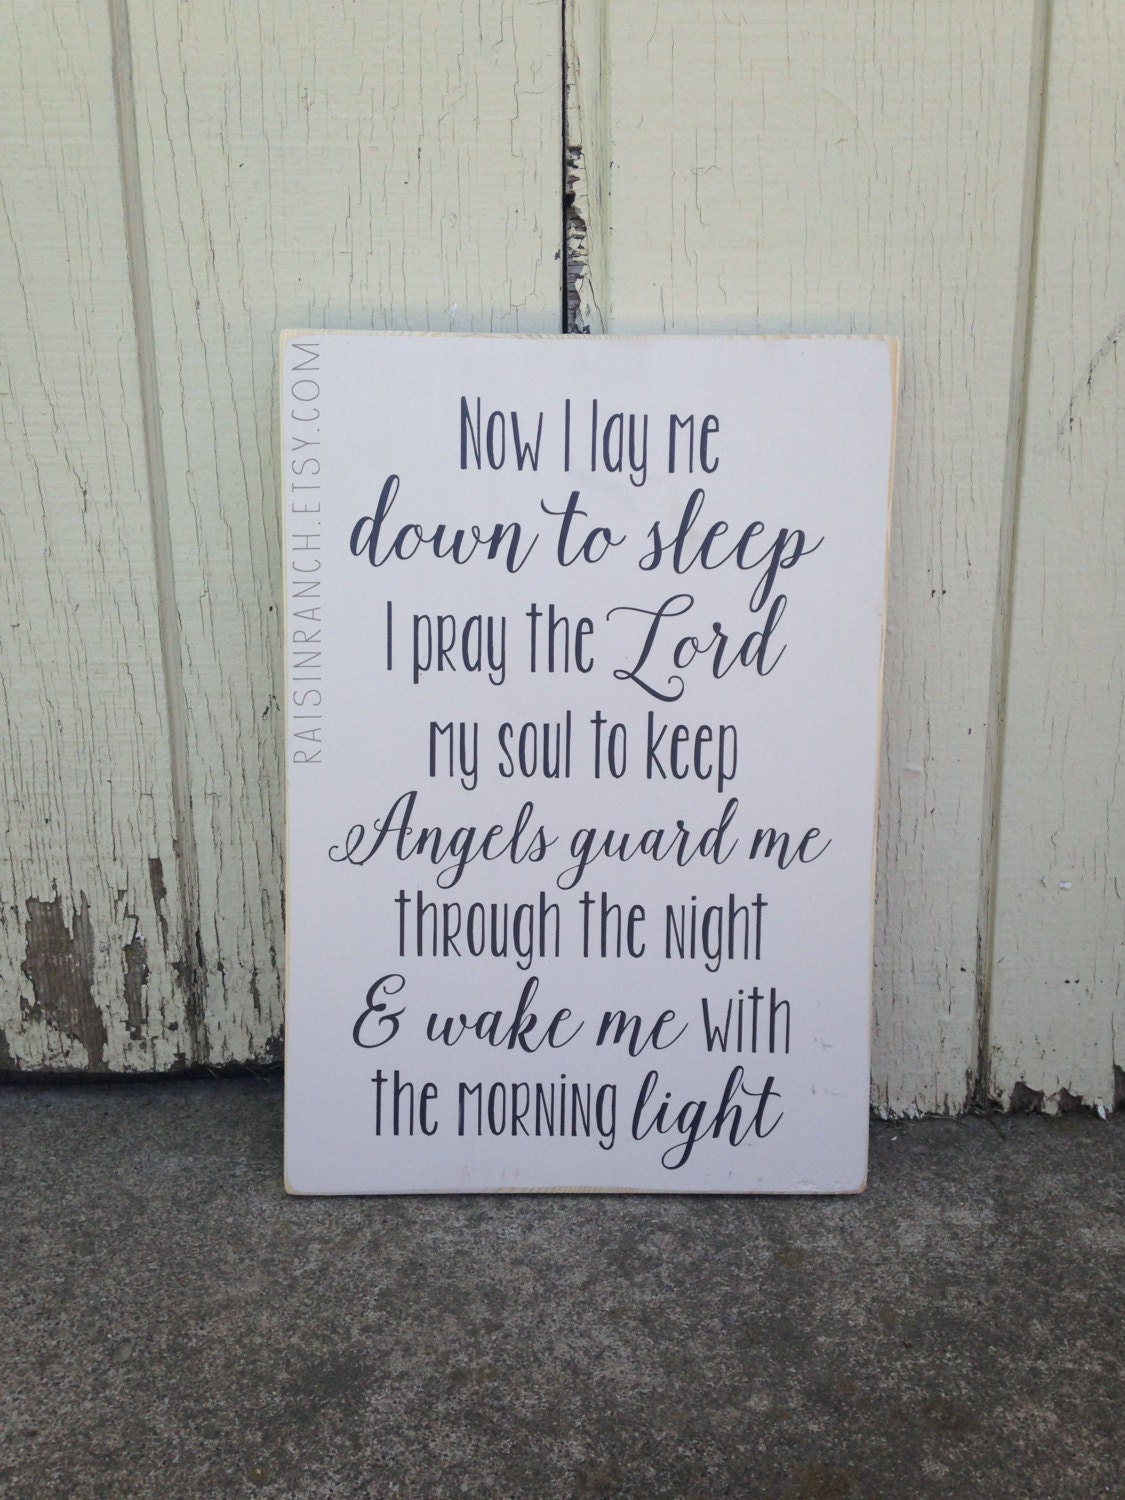 Now I lay me
down to sleep
I pray the Lord
my soul to keep
Angels guard me
through the night
& wake me with
the morning light
RAISINRANCH.ETSY.COM